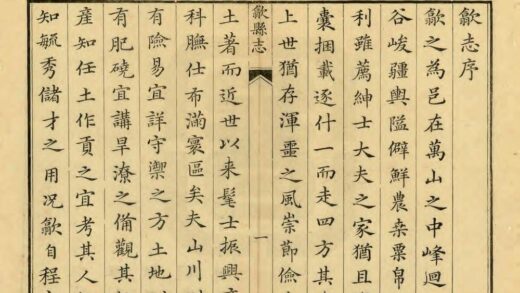 歙志序
歙之為邑在萬山之中峰迴
谷峻疆輿隘僻鮮農桒粟帛
利雖薦紳士大夫之家猶且
囊捆載逐什一而走四方其
上世猶存渾噩之風崇節儉
歙縣志
一
土著而近世以来髦士振興
科膴仕布滿寰區矣夫山川
有險易宜詳守禦之方土地
有肥磽宜講旱潦之備觀其
產知任土作貢之宜考其人
知毓秀儲才之用况歙自程